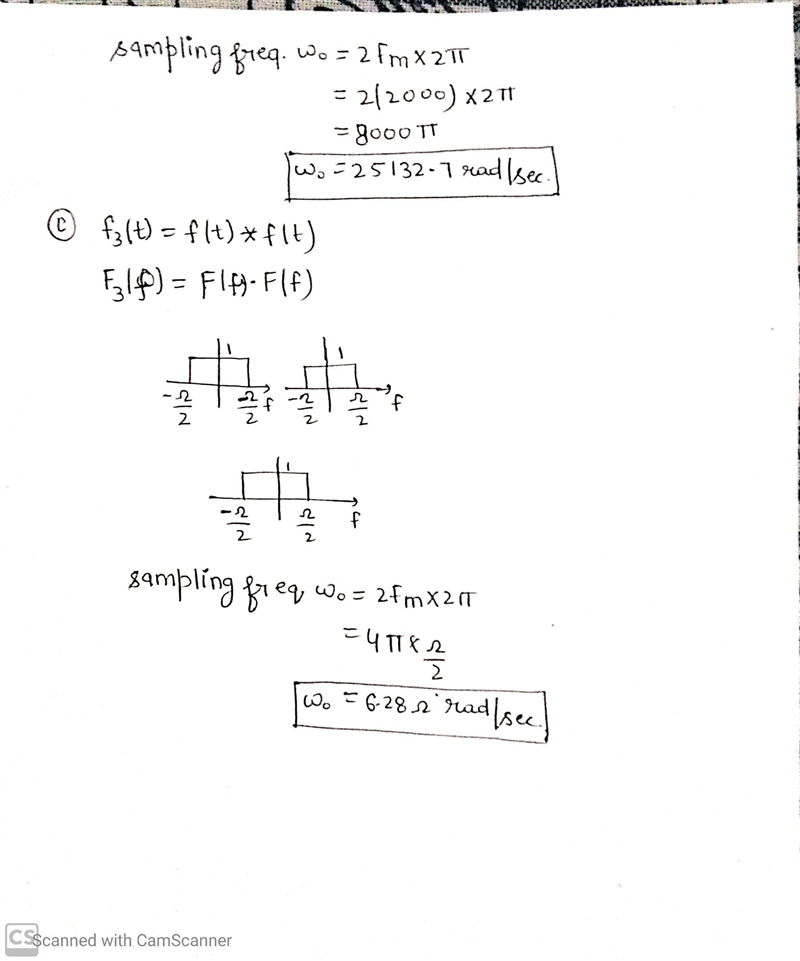 sampling freq. ω₀ = 2fm×2π
= 2(2000)×2π
= 8000π
ω₀ = 25132.7 rad/sec.
ⓒ f₃(t) = f(t) * f(t)
F₃(f) = F(f)·F(f)
1 1
-Ω/2 Ω/2 f -Ω/2 Ω/2 f
1
-Ω/2 Ω/2 f
sampling freq ω₀ = 2fm×2π
= 4π×Ω/2
ω₀ = 6.28Ω rad/sec.
CS Scanned with CamScanner